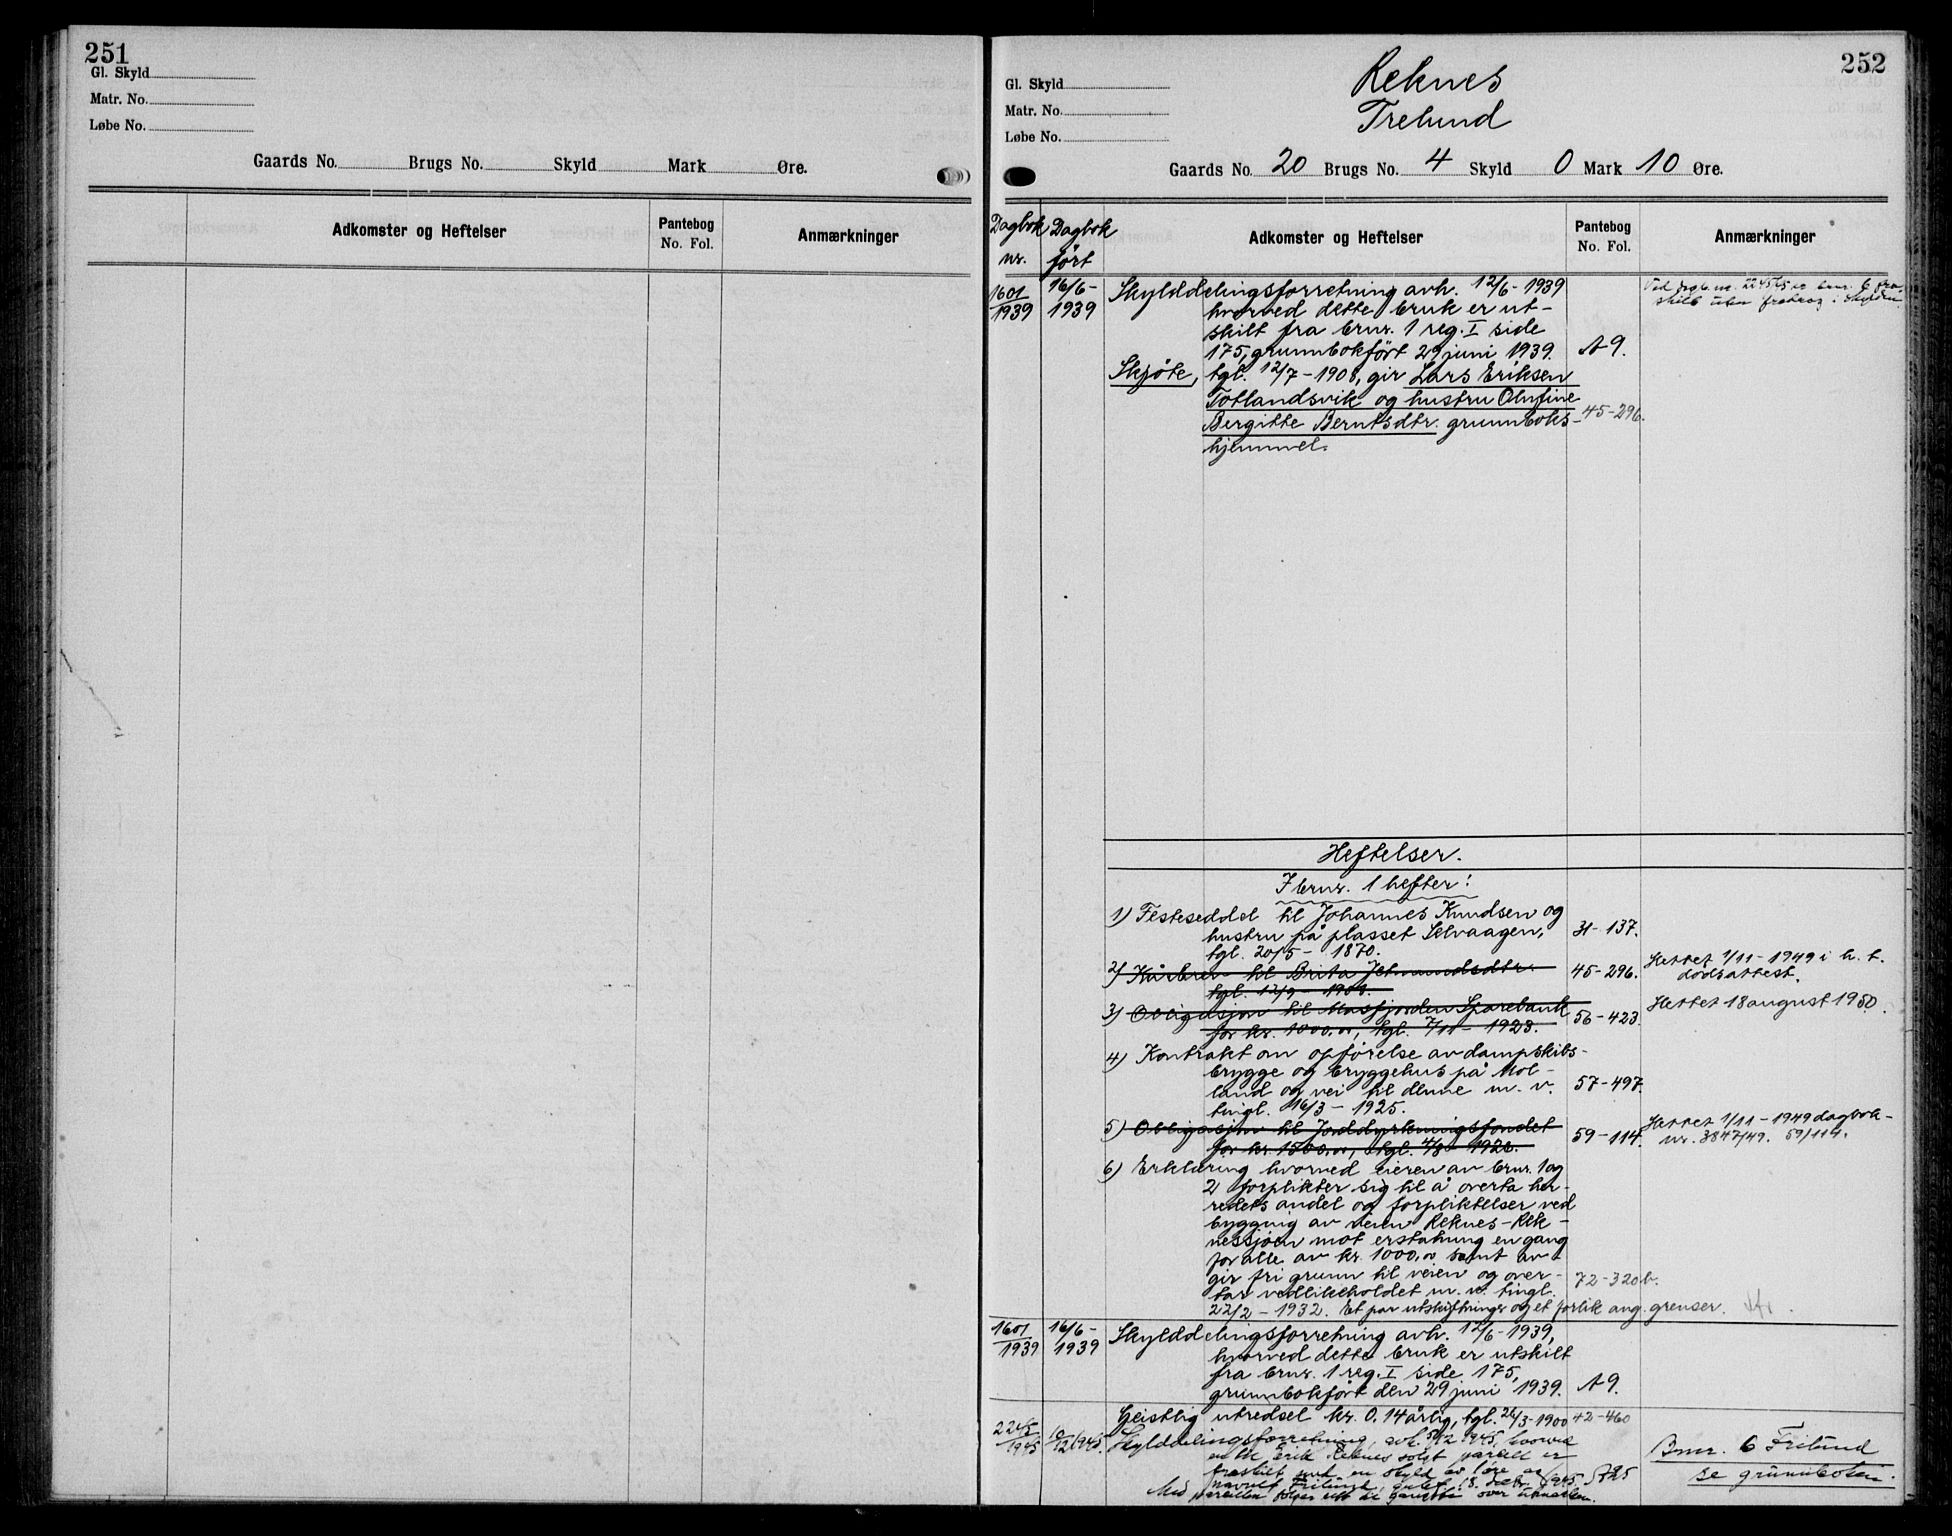 251
Gl. Skyld
Matr. No.
Løbe No.
Gaards No. Brugs No. Skyld Mark Øre.
Adkomster og Heftelser
Pantebog
No. Fol.
Anmærkninger
252
Reknes
Trelund
Gl. Skyld
Matr. No.
Løbe No.
Gaards No. 20 Brugs No. 4 Skyld 0 Mark 10 Øre.
Dagbok nr.
Dagbok ført
Adkomster og Heftelser
Pantebog
No. Fol.
Anmærkninger
1601/1939 16/6-1939 Skylddelingsforretning avh. 12/6-1939
hvorved dette bruk er ut-
skilt fra bnr. 1 reg. I side
175, grunnbokført 29 juni 1939. A9.
Ved dagb. nr. 2245/45 er bnr. 6 fra-
skilt uten fradrag i skylden.
Skjøte, tgl. 12/7-1908, gir Lars Eriksen
Totlandsvik og hustru Olufine
Bergitte Berntsdtr. grunnboks-
hjemmel.
45-296.
Heftelser.
I bnr. 1 hefter:
1) Festeseddel til Johannes Knudsen og
hustru på plasset Selvaagen,
tgl. 20/5-1870.
31-137.
2) Kårbrev til Brita
45-296.
Slettet 1/11-1949 i h. t.
dødsattest.
3) Obligasjon til Masfjorden Sparebank
for kr. 1000,00, tgl. 7/11-1923.
56-423.
Slettet 18 august 1950.
4) Kontrakt om opførelse av dampskibs-
brygge og bryggehus på Mol-
land og vei til denne m. v.
tingl. 16/3-1925.
57-497.
5) Obligasjon til Jorddyrkningsfondet
for kr. 1500,00, tgl. 4/8-1926.
59-114.
Slettet 1/11-1949 dagbok-
nr. 3847/49. 59/114.
6) Erklæring hvorved eieren av bnr. 1 og
2 forplikter sig til å overta her-
redets andel og forpliktelser ved
bygging av veien Reknes-Rek-
nessjøen mot erstatning en gang
for alle av kr. 1000,00 samt av-
gir fri grunn til veien og over-
tar vedlikeholdet m. v. tingl.
22/2-1932. Et par utskiftninger og et forlik ang. grenser.
72-320b.
1601/1939 16/6-1939 Skylddelingsforretning avh. 12/6-1939,
hvorved dette bruk er utskilt
fra bnr. 1 reg. I side 175,
grunnbokført den 29 juni 1939. A9.
Geistlig utredsel kr. 0.14 årlig, tgl. 26/3-1900 42-460
2245/1945 10/12 1945. Skylddelingsforretning, avh. 5/12 1945, hvorved
en til Erik Reknes solgt parsell er
fraskilt med en skyld av 1 øre og
navnet Frilund, 18. 1945. A25
Med parsellen følger rett til over utmarken.
Bnr. 6 Frilund
se grunnboken.